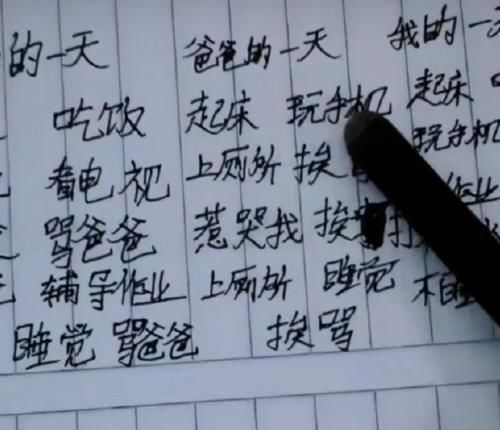 的一天 爸爸的一天 我的一天
吃饭 起床 玩手机 起床
看电视 上厕所 挨 玩手机
骂爸爸 惹哭我 挨 作业
辅导作业 上厕所 睡觉 不睡
睡觉 骂爸爸 挨骂